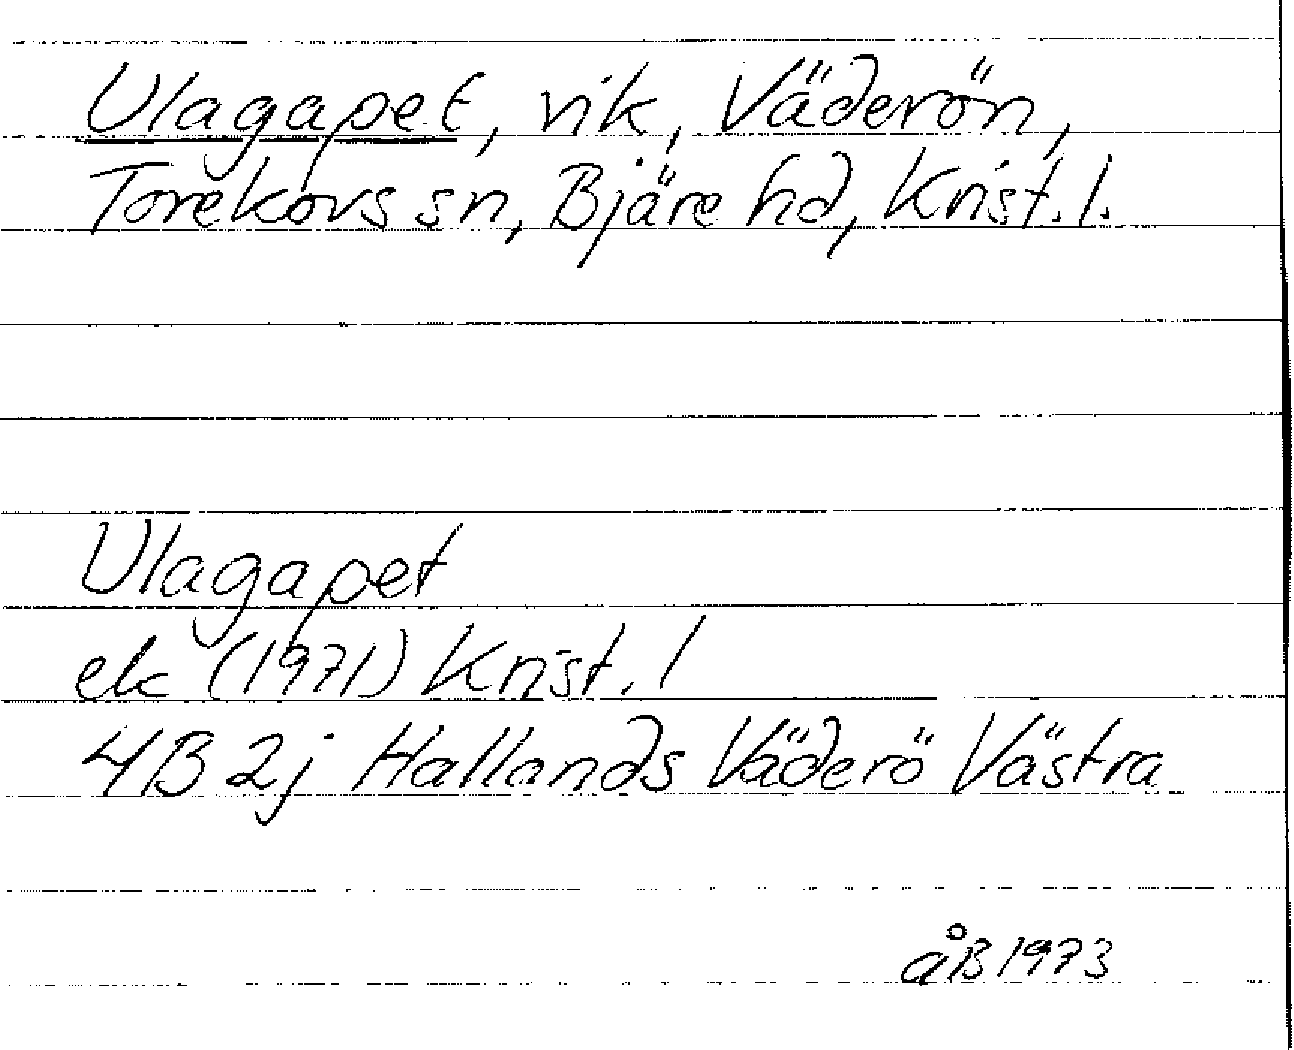 Ulagapet, vik, Väderön,
Torekovs sn, Bjäre hd, Krist. l.
Ulagapet
ek (1971) Krist. l
4B 2j Hallands Väderö Västra
åB 1973